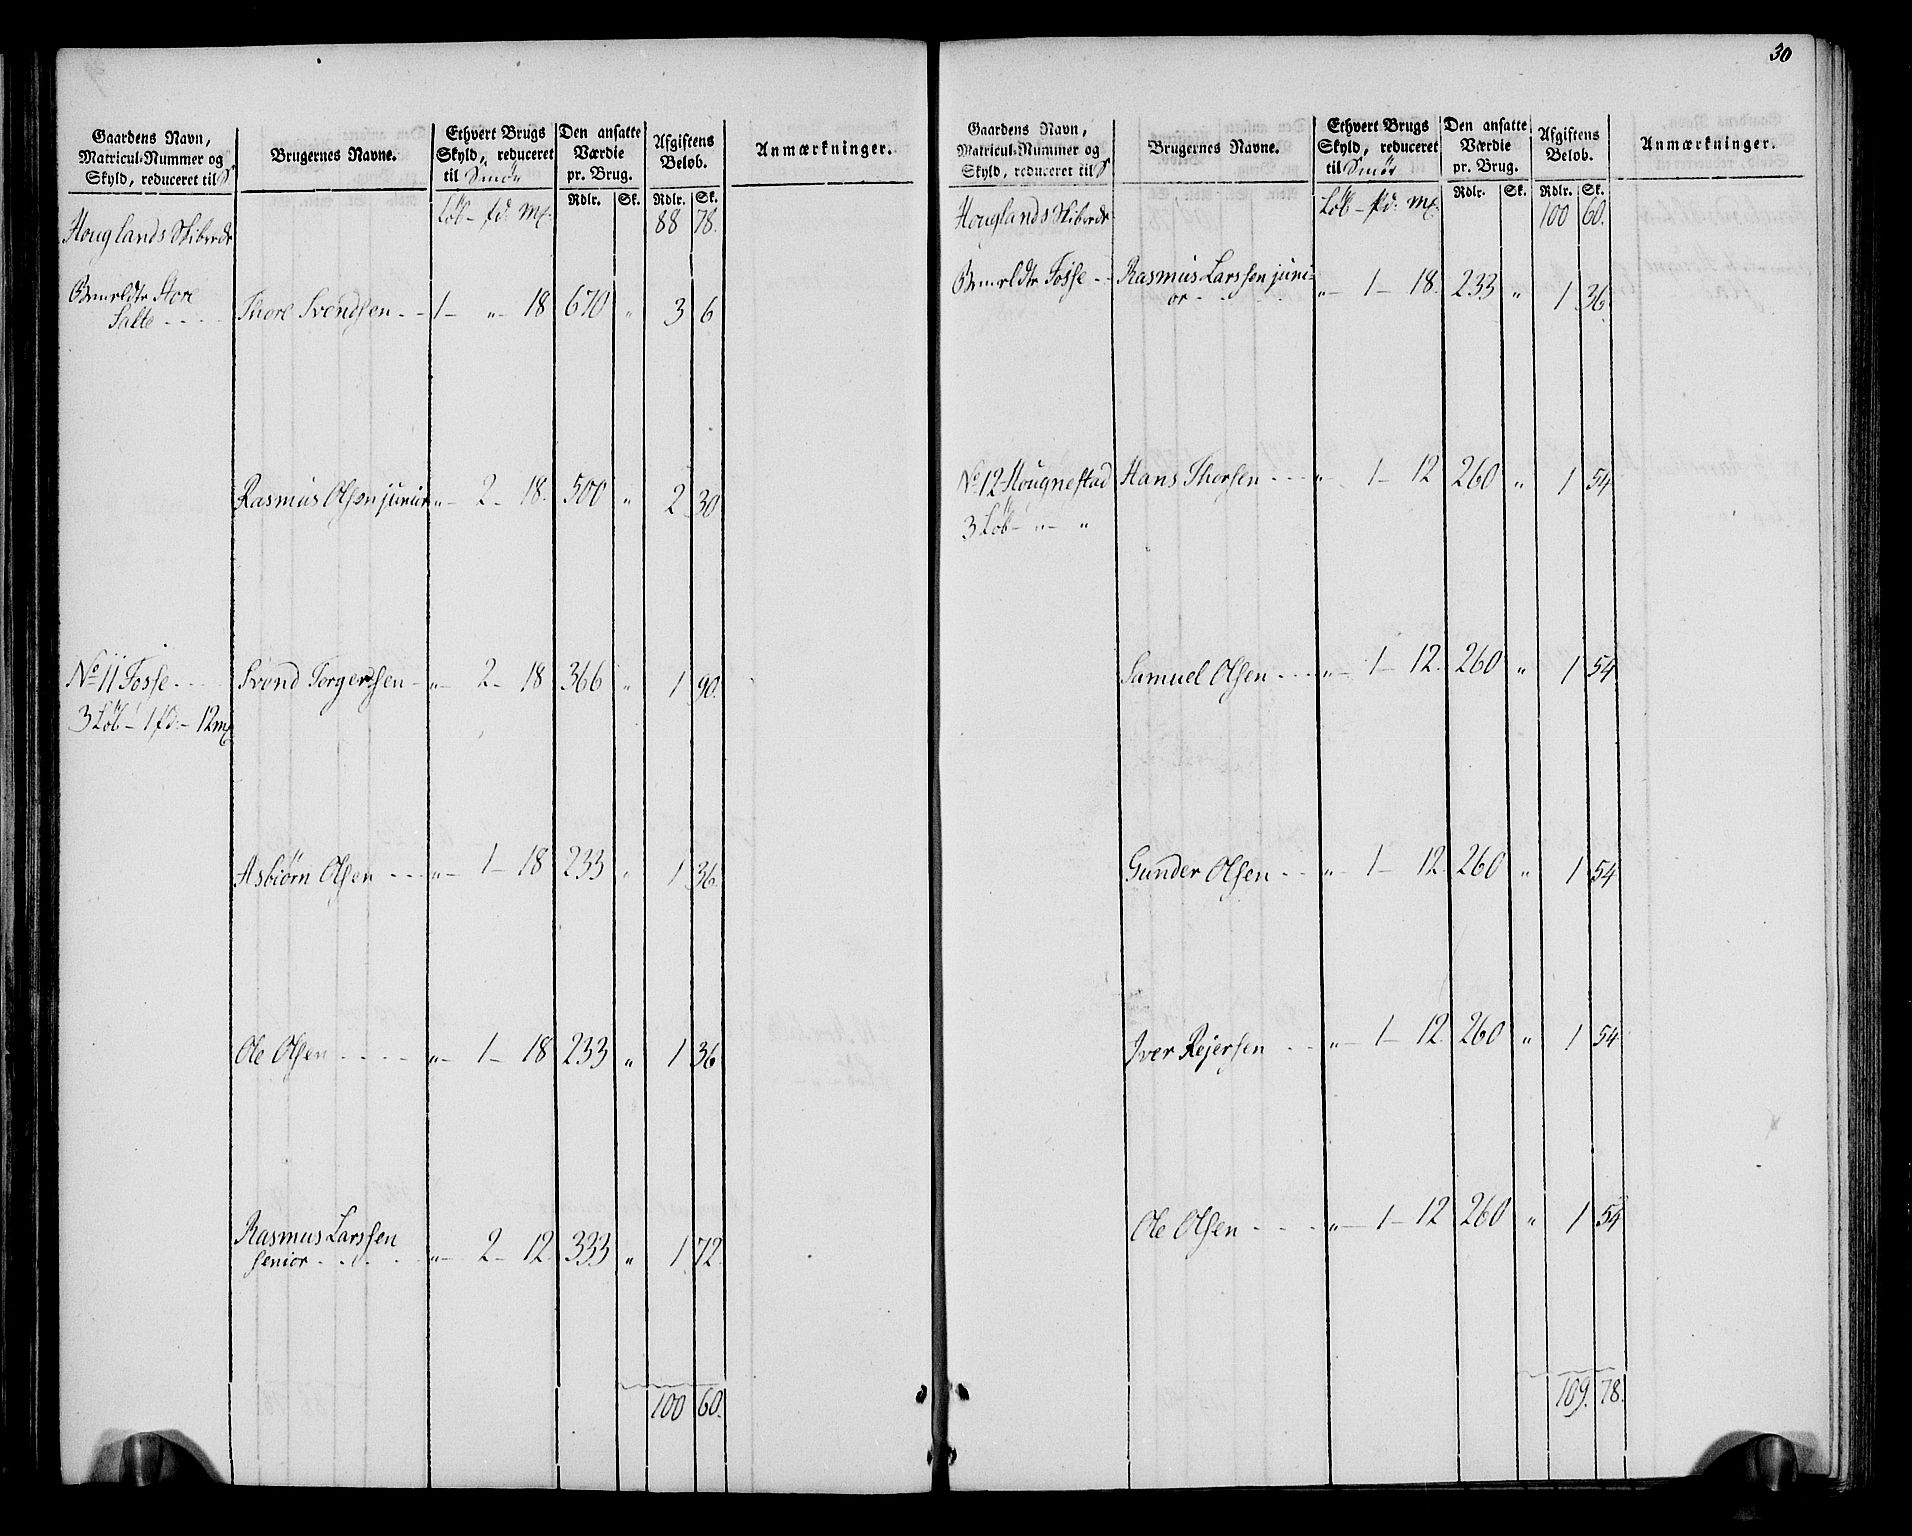 30
Gaardens Navn, Matricul-Nummer og Skyld, reduceret til S
Brugernes Navne.
Ethvert Brugs Skyld, reduceret til Smör
Den ansatte Værdie pr. Brug.
Afgiftens Beløb.
Anmærkninger.
Rdlr. Sk. Rdlr. Sk.
Houglands Skibrede Löb - pd: mk 88 78.
Store Salte Thore Svendsen 1 - " - 18 670 " 3 6
Rasmus Olsen junior " - 2 - 18. 500 " 2 30
No 11 Fosse Svend Torgersen " - 2 - 18 366 " 1 90.
3 Löb - 1 pd: - 12 mk
Asbiørn Olsen " - 1 - 18 233 " 1 36.
Ole Olsen " - 1 - 18 233 " 1 36
Rasmus Larssen
senior " - 2 - 12. 333 " 1 72.
100 60.
Gaardens Navn, Matricul-Nummer og Skyld, reduceret til S
Brugernes Navne.
Ethvert Brugs Skyld, reduceret til Smör
Den ansatte Værdie pr. Brug.
Afgiftens Beløb.
Anmærkninger.
Rdlr. Sk. Rdlr. Sk.
Houglands Skibrede Löb - pd: mk 100 60.
Fosse Rasmus Larssen juni-
or " - 1 - 18. 233 " 1 36.
No 12 Hougnestad Hans Thorsen " - 1 - 12 260 " 1 54
3 Löb - " - "
Samuel Olsen " - 1 - 12. 260 " 1 54
Gunder Olsen " - 1 - 12. 260 " 1 54
Iver Rejersen " - 1 - 12. 260 " 1 54
Ole Olsen " - 1 - 12 260 " 1 54
109. 78.